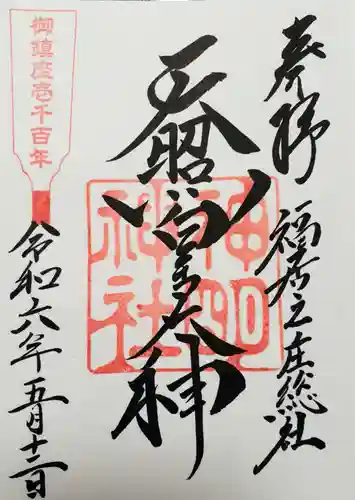 奉拝
福居之庄総社
天照皇大神
神明
神社
御鎮座壱千百年
令和六年五月十二日